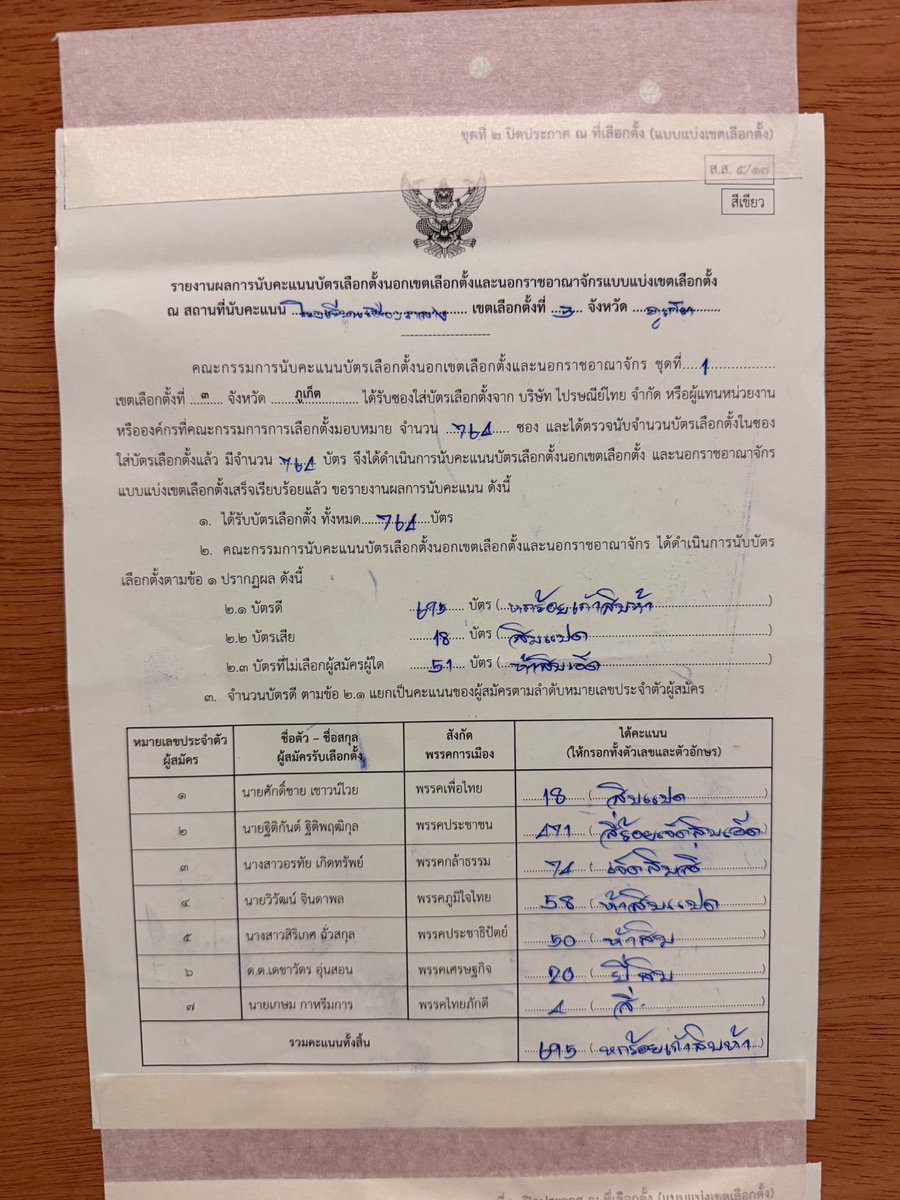 ชุดที่ ๒ ปิดประกาศ ณ ที่เลือกตั้ง (แบบแบ่งเขตเลือกตั้ง)
ส.ส. ๕/๑๗
สีเขียว
รายงานผลการนับคะแนนบัตรเลือกตั้งนอกเขตเลือกตั้งและนอกราชอาณาจักรแบบแบ่งเขตเลือกตั้ง
ณ สถานที่นับคะแนน โรงเรียนเมืองถลาง เขตเลือกตั้งที่ 3 จังหวัด ภูเก็ต
คณะกรรมการนับคะแนนบัตรเลือกตั้งนอกเขตเลือกตั้งและนอกราชอาณาจักร ชุดที่ 1
เขตเลือกตั้งที่ ๓ จังหวัด ภูเก็ต ได้รับซองใส่บัตรเลือกตั้งจาก บริษัท ไปรษณีย์ไทย จำกัด หรือผู้แทนหน่วยงาน
หรือองค์กรที่คณะกรรมการการเลือกตั้งมอบหมาย จำนวน 764 ซอง และได้ตรวจนับจำนวนบัตรเลือกตั้งในซอง
ใส่บัตรเลือกตั้งแล้ว มีจำนวน 764 บัตร จึงได้ดำเนินการนับคะแนนบัตรเลือกตั้งนอกเขตเลือกตั้ง และนอกราชอาณาจักร
แบบแบ่งเขตเลือกตั้งเสร็จเรียบร้อยแล้ว ขอรายงานผลการนับคะแนน ดังนี้
๑. ได้รับบัตรเลือกตั้ง ทั้งหมด 764 บัตร
๒. คณะกรรมการนับคะแนนบัตรเลือกตั้งนอกเขตเลือกตั้งและนอกราชอาณาจักร ได้ดำเนินการนับบัตร
เลือกตั้งตามข้อ ๑ ปรากฏผล ดังนี้
๒.๑ บัตรดี 695 บัตร (หกร้อยเก้าสิบห้า)
๒.๒ บัตรเสีย 18 บัตร (สิบแปด)
๒.๓ บัตรที่ไม่เลือกผู้สมัครผู้ใด 51 บัตร (ห้าสิบเอ็ด)
๓. จำนวนบัตรดี ตามข้อ ๒.๑ แยกเป็นคะแนนของผู้สมัครตามลำดับหมายเลขประจำตัวผู้สมัคร
หมายเลขประจำตัวผู้สมัคร ชื่อตัว – ชื่อสกุล ผู้สมัครรับเลือกตั้ง สังกัดพรรคการเมือง ได้คะแนน (ให้กรอกทั้งตัวเลขและตัวอักษร)
๑ นายศักดิ์ชาย เชาวน์ไวย พรรคเพื่อไทย 18 (สิบแปด)
๒ นายฐิติกันต์ ฐิติพฤฒิกุล พรรคประชาชน 471 (สี่ร้อยเจ็ดสิบเอ็ด)
๓ นางสาวอรทัย เกิดทรัพย์ พรรคกล้าธรรม 74 (เจ็ดสิบสี่)
๔ นายวิวัฒน์ จินดาพล พรรคภูมิใจไทย 58 (ห้าสิบแปด)
๕ นางสาวสิริเกศ ฉั่วสกุล พรรคประชาธิปัตย์ 50 (ห้าสิบ)
๖ ด.ต.เดชาวัตร อุ่นสอน พรรคเศรษฐกิจ 20 (ยี่สิบ)
๗ นายเกษม กาหรีมการ พรรคไทยภักดี 4 (สี่)
รวมคะแนนทั้งสิ้น 695 (หกร้อยเก้าสิบห้า)